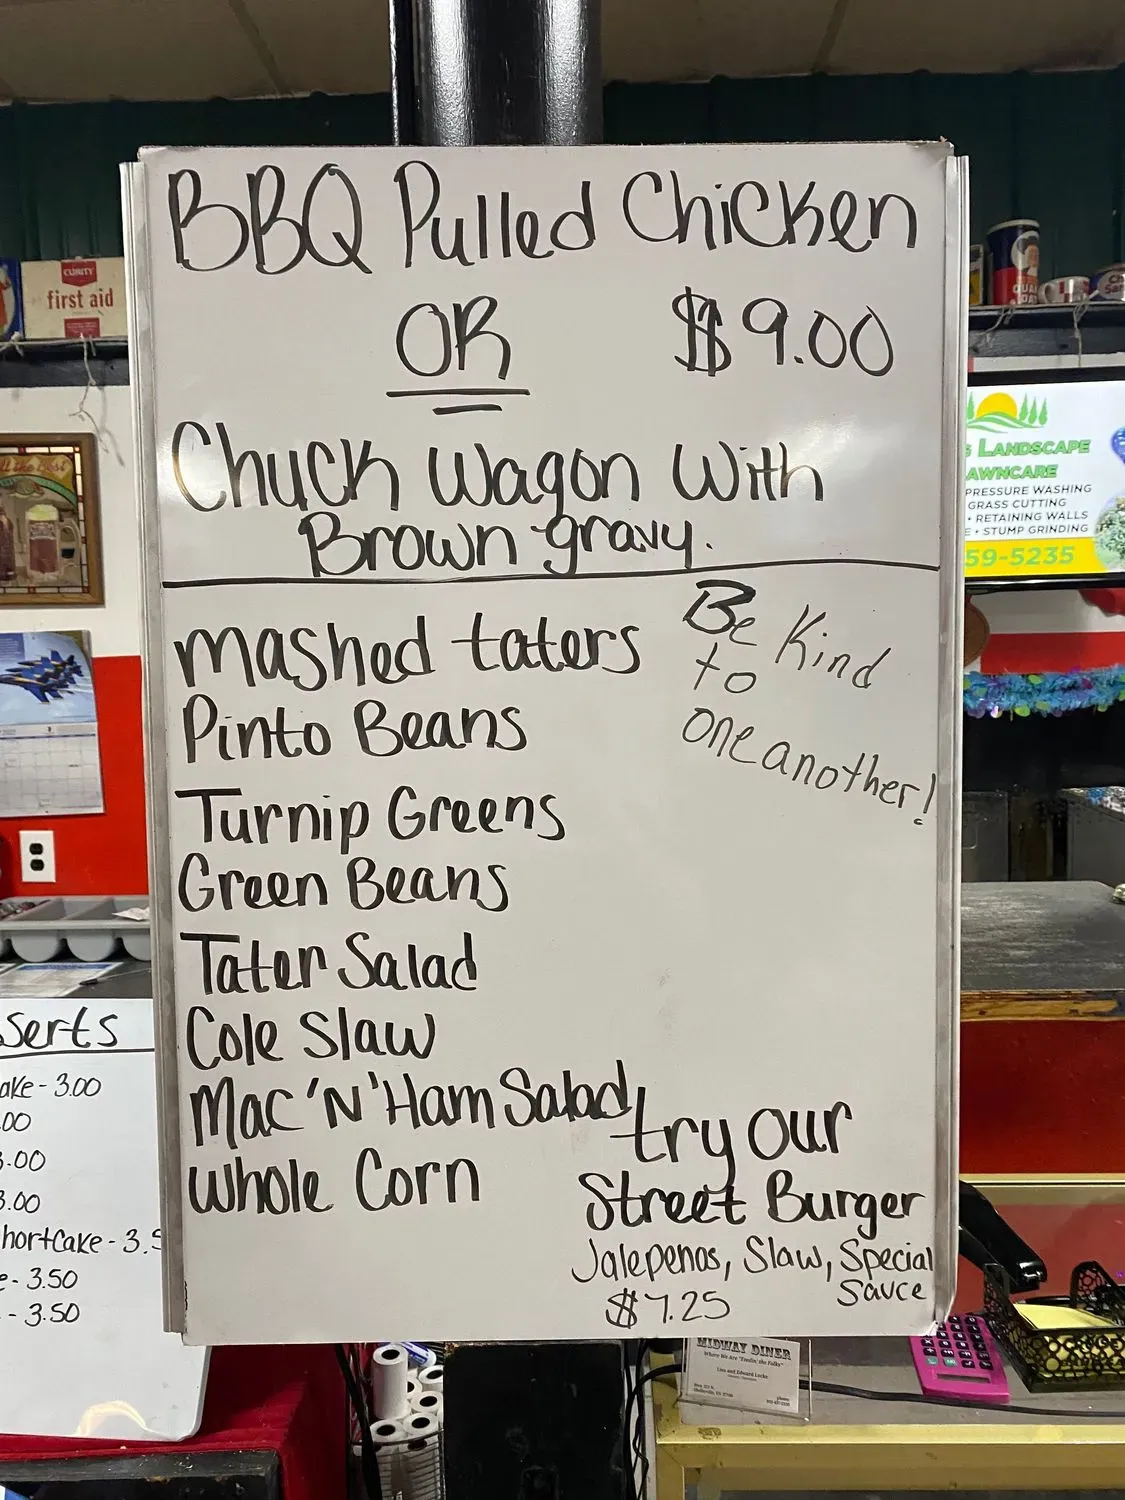 BBQ Pulled Chicken
OR $9.00
Chuck Wagon With
Brown gravy.
mashed taters
Pinto Beans
Turnip Greens
Green Beans
Tater Salad
Cole Slaw
Mac 'N' Ham Salad
Whole Corn
Be Kind
to
one another!
try our
Street Burger
Jalepenos, Slaw, Special
Sauce
$7.25
CURITY
first aid
LANDSCAPE
AWNCARE
PRESSURE WASHING
GRASS CUTTING
• RETAINING WALLS
E • STUMP GRINDING
59-5235
serts
ake - 3.00
.00
3.00
3.00
hortcake - 3.5
e - 3.50
- 3.50
MIDWAY DINER
Where We Are "Feedin' the Folks"
Lisa and Edward Locke